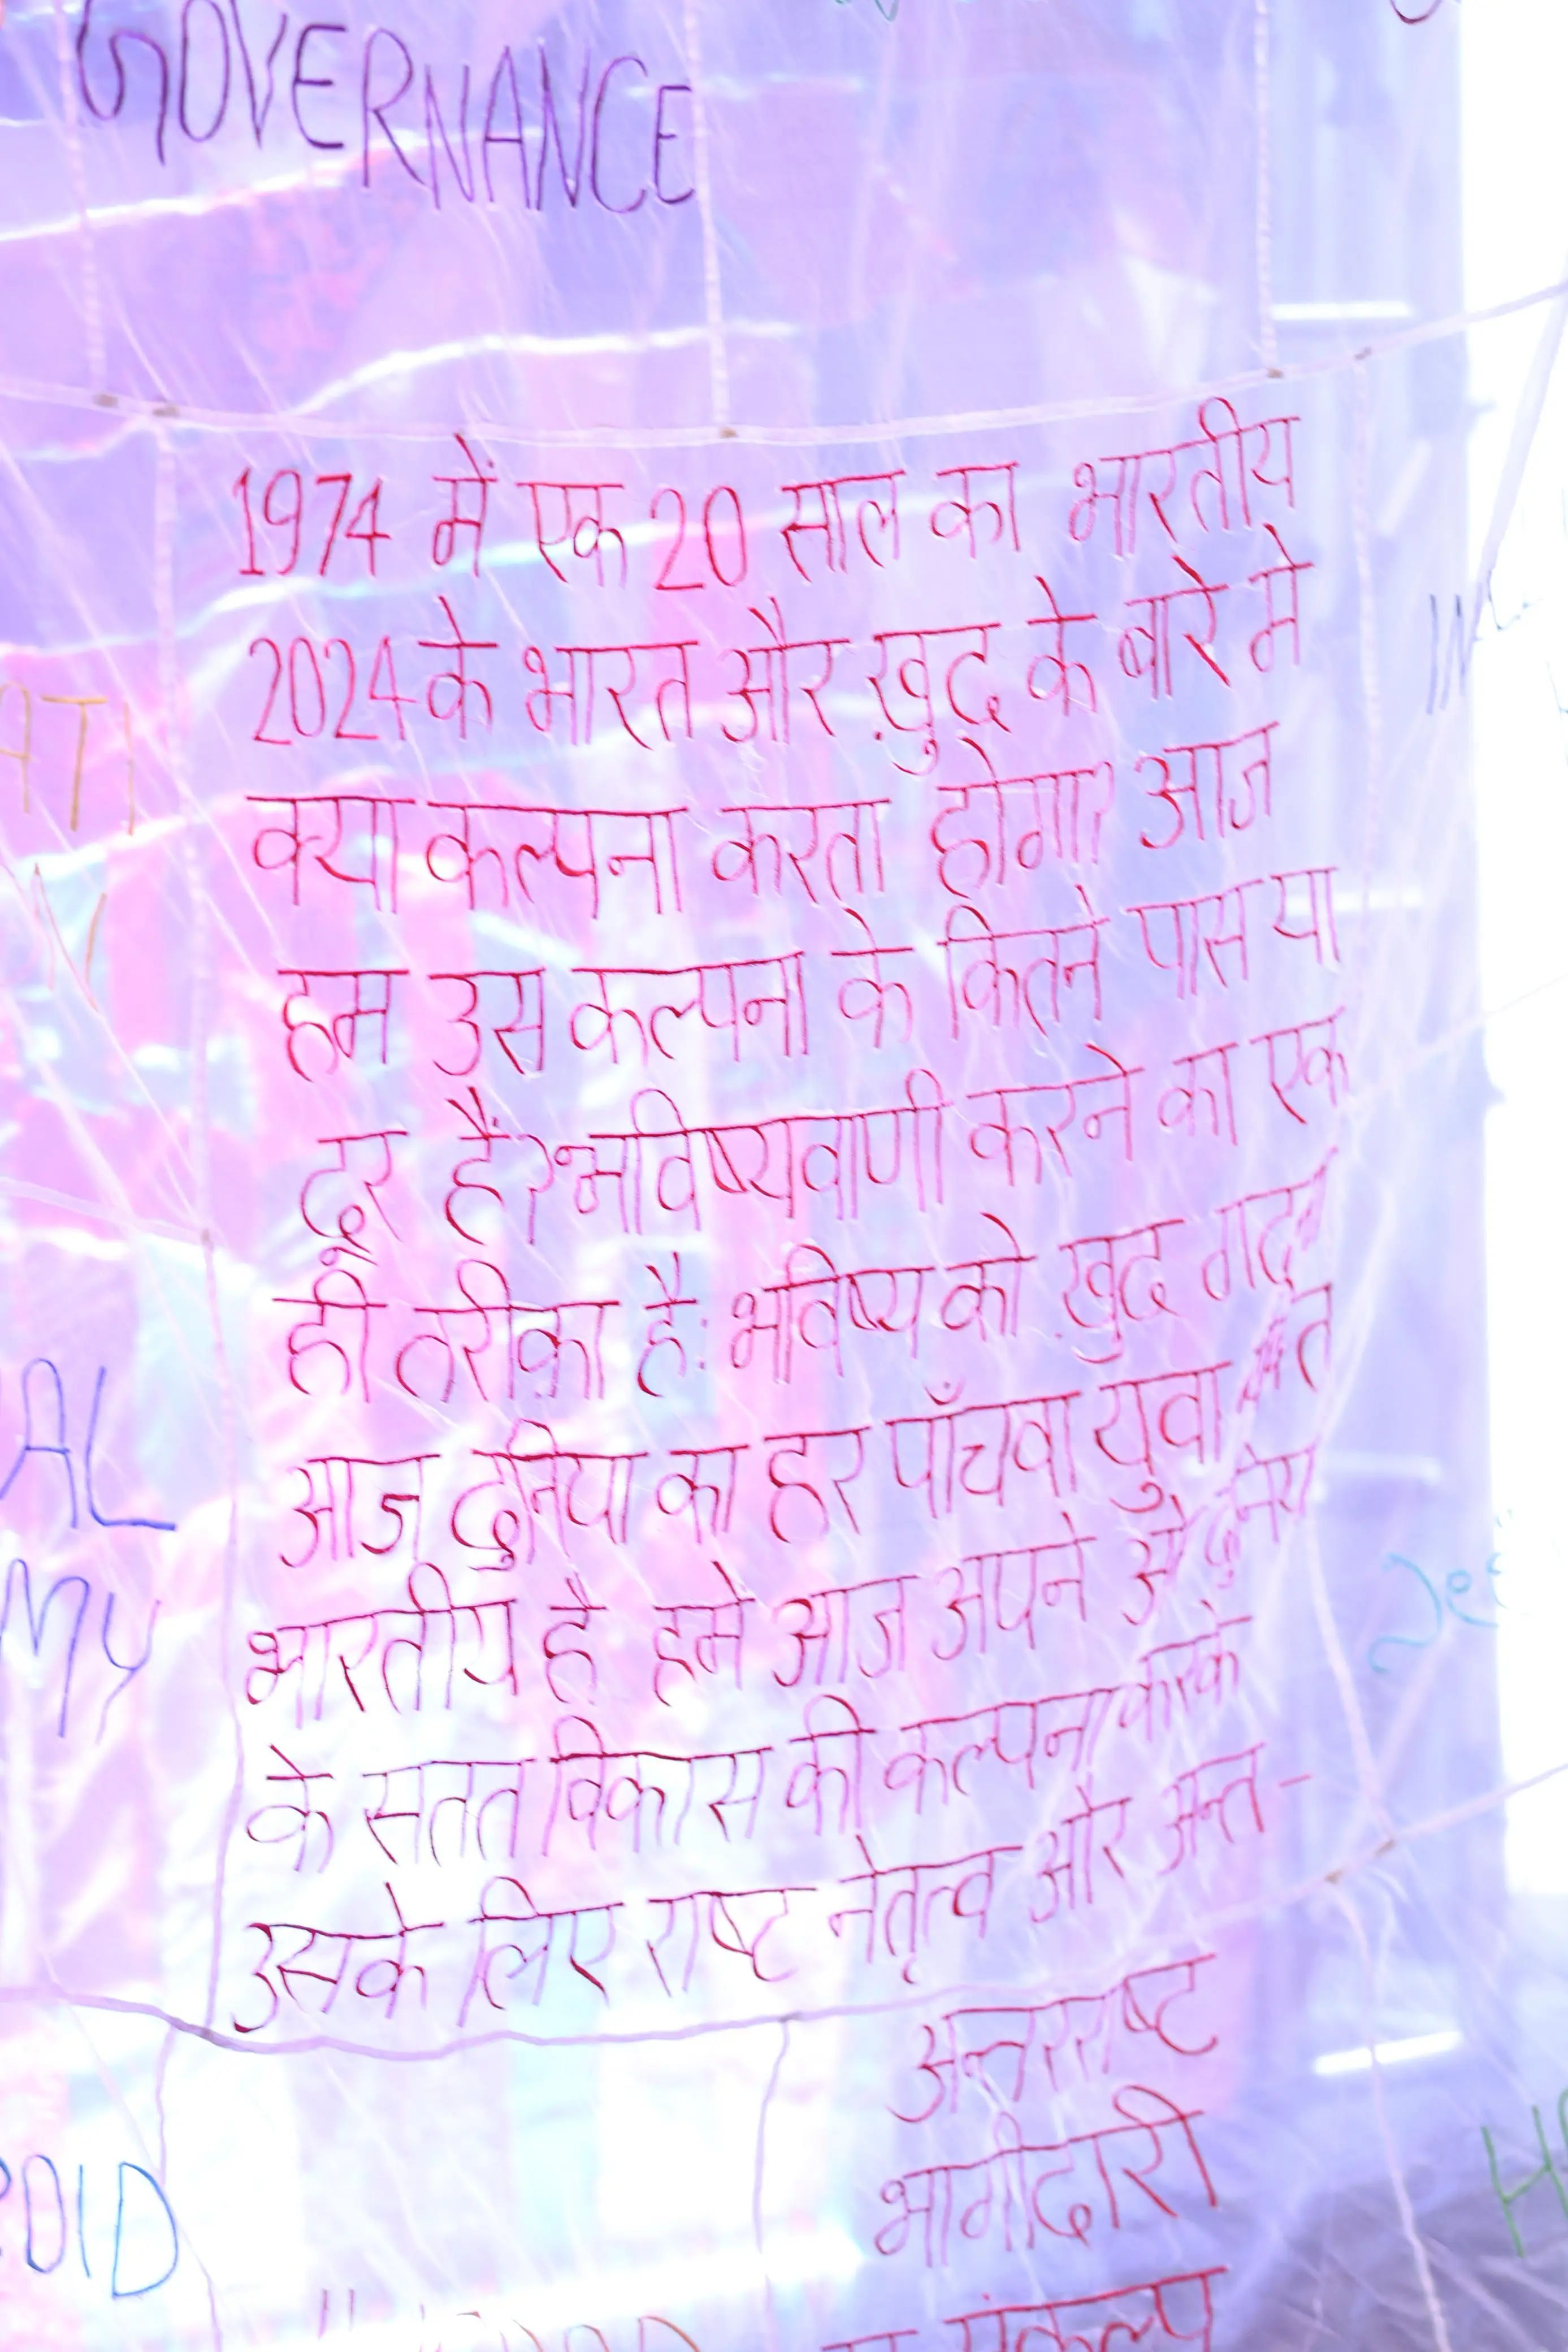 GOVERNANCE
1974 में एक 20 साल का भारतीय
2024 के भारत और ख़ुद के बारे मे
क्या कल्पना करता होगा? आज
हम उस कल्पना के कितने पास या
दूर हैं? भविष्यवाणी करने का एक
ही तरीक़ा है: भविष्य को ख़ुद गढ़ना
आज दुनिया का हर पाँचवा युवा
भारतीय है हमे आज अपने औ दुनिया
के सतत विकास की कल्पना करके
उसके लिए राष्ट नेतृत्व और अन्त-
अन्तरराष्ट
भागीदारी
संकल्प
ATI
AL
MY
OID